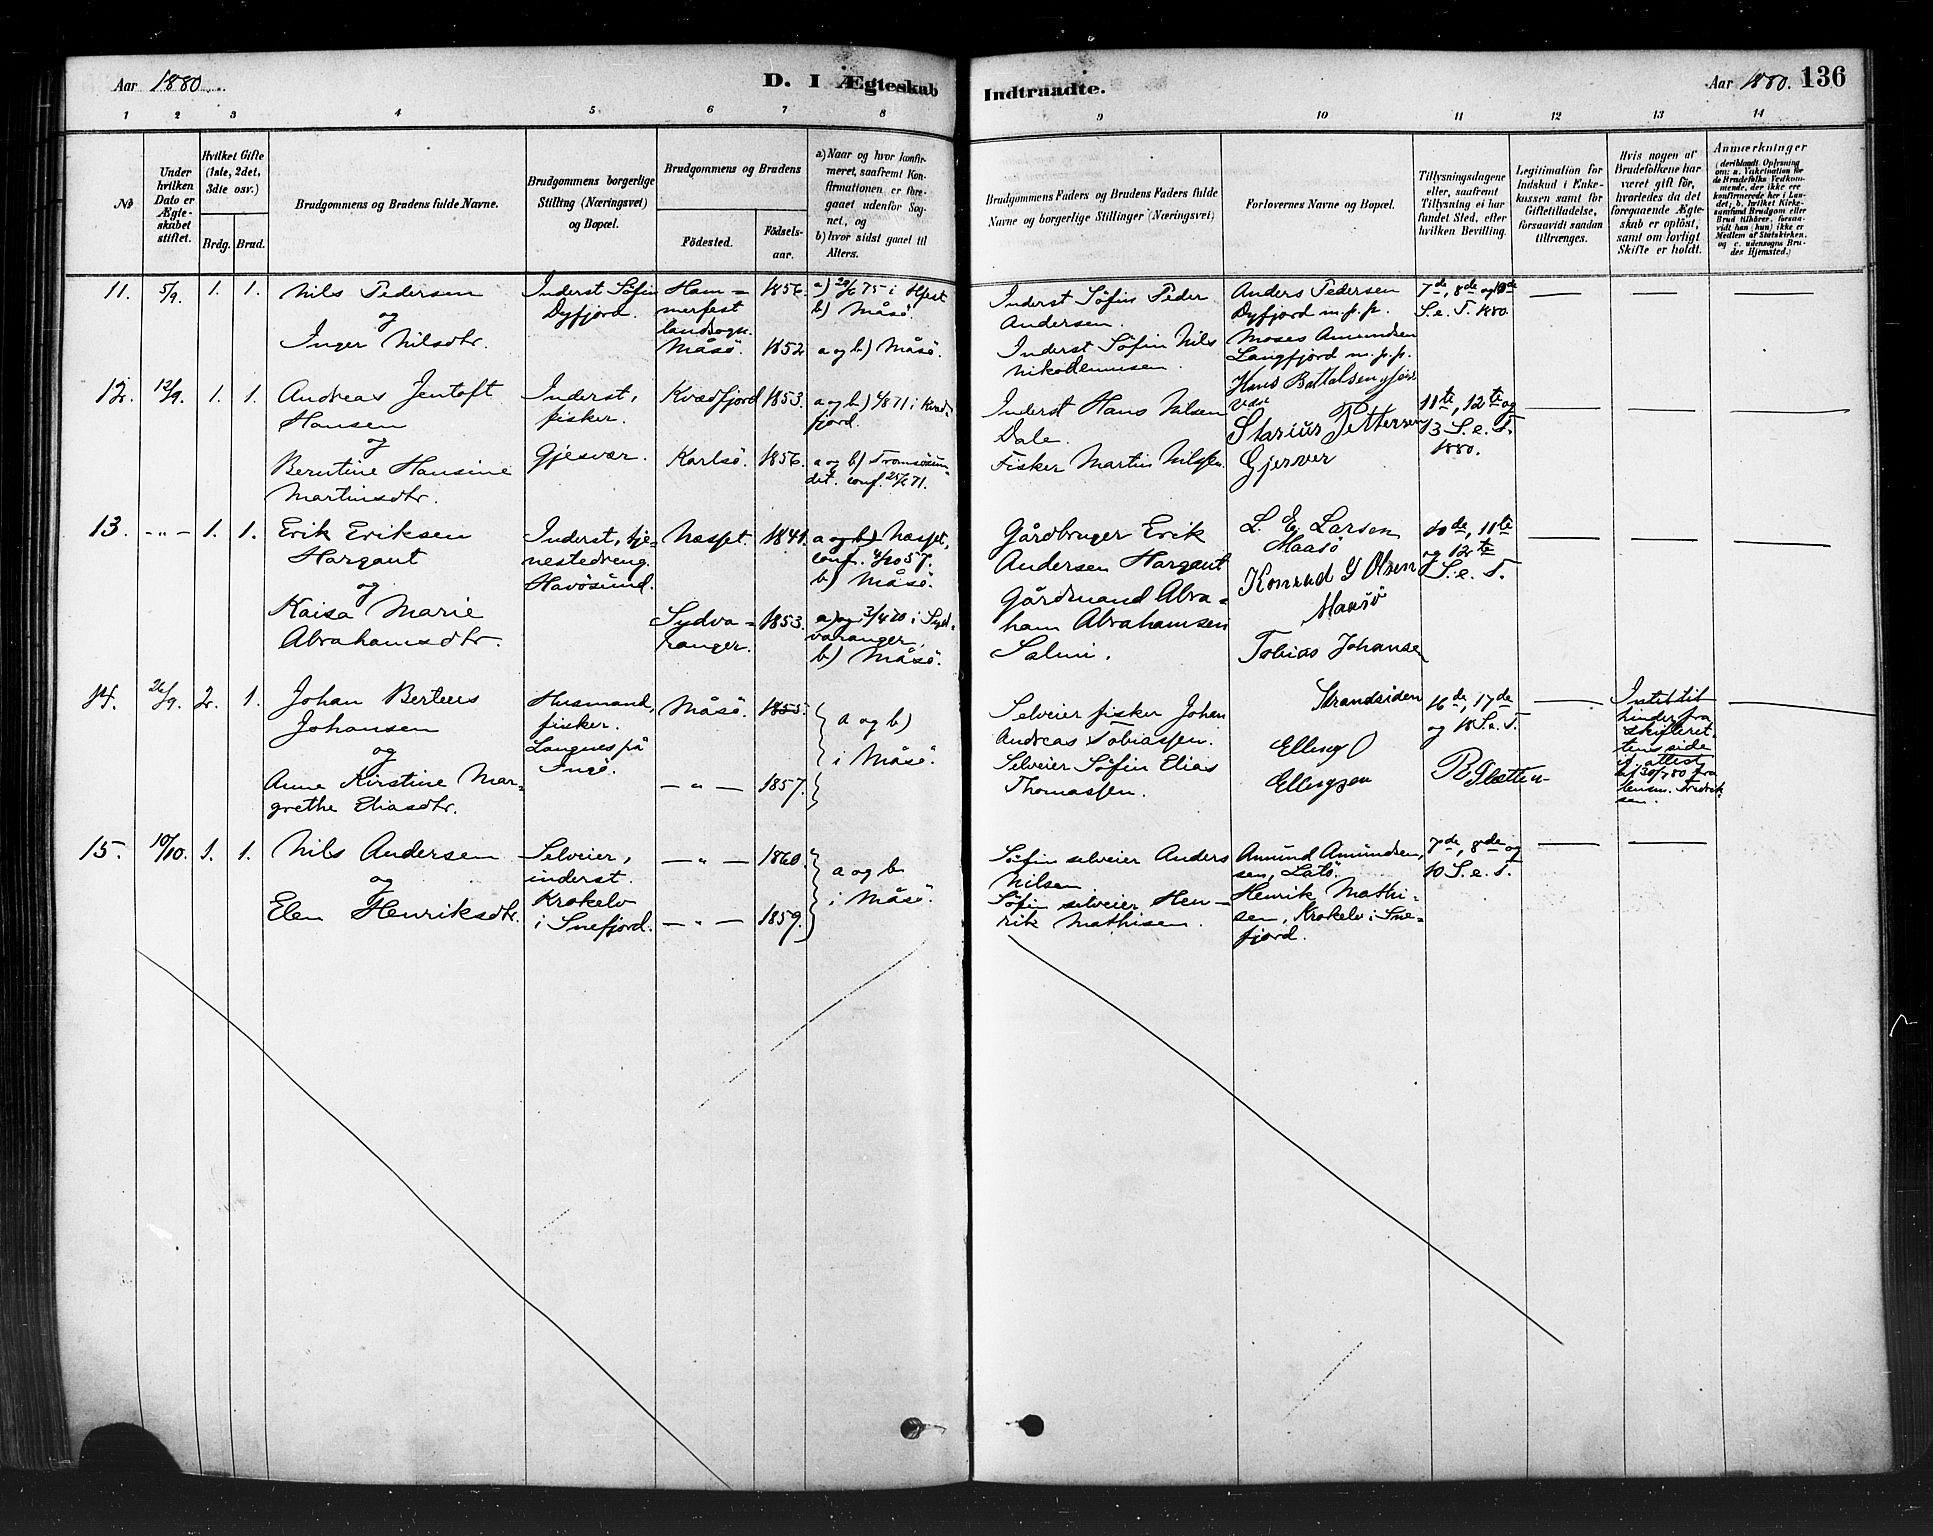 Aar 1880.
D. I Ægteskab
Indtraadte.
Aar 1880.
136
1 2 3 4 5 6 7 8
9 10 11 12 13 14
No
Under hvilken Dato er Ægteskabet stiftet.
Hvilket Gifte (1ste, 2det, 3die osv.)
Brdg. Brud.
Brudgommens og Brudens fulde Navne.
Brudgommens borgerlige Stilling (Næringsvei) og Bopæl.
Brudgommens og Brudens
Fødested.
Fødselsaar.
a) Naar og hvor konfirmeret, saafremt Konfirmationen er foregaaet udenfor Sognet, og
b) hvor sidst gaaet til Alters.
Brudgommens Faders og Brudens Faders fulde Navne og borgerlige Stillinger (Næringsvei)
Forlovernes Navne og Bopæl.
Tillysningsdagene eller, saafremt Tillysning ei har fundet Sted, efter hvilken Bevilling.
Legitimation for Indskud i Enkekassen samt for Giftetilladelse, forsaavidt saadan tiltrænges.
Hvis nogen af Brudefolkene har været gift før, hvorledes da det foregaaende Ægteskab er opløst, samt om lovligt Skifte er holdt.
Anmærkninger
(deriblandt Oplysning om: a. Vakcination for de Brudefolks Vedkommende, der ikke ere konfirmerede her i Landet, b. hvilket Kirkesamfund Brudgom eller Brud tilhører, forsaavidt han (hun) ikke er Medlem af Statskirken, og c. udensogns Brudes Hjemsted.)
11. 5/9. 1. 1.
Nils Pedersen
og
Inger Nilsdtr.
Inderst Søfin
Dyfjord.
Ham-
merfest
landsogn.
Måsø.
1856.
1852
a) 29/6 75 i Hfest
b) Måsø.
a og b) Måsø.
Inderst Søfin Peder
Andersen.
Inderst Søfin Nils
Nikodemusen.
Anders Pedersen
Dyfjord m.p.p.
Moses Amundsen
Langfjord m.p.p.
7de, 8de og 10de
S.e.T. 1880.
12. 12/9. 1. 1.
Andreas Jentoft
Hansen
og
Berntine Hansine
Martinsdtr.
Inderst,
fisker.
Gjesvær.
Kvædfjord
Karlsø.
1853.
1856.
a og b) 4/8 71 i Kvæd-
fjord.
a og b) Tromsøsun-
det. conf. 25/6 71.
Inderst Hans Nilsen
Dale.
Fisker Martin Nilssen.
Hans
Pettersen
Gjesver
11te, 12te og
13 S.e.T.
1880.
13. -"- 1. 1.
Erik Eriksen
Hargaut
og
Kaisa Marie
Abrahamsdtr.
Inderst, tje-
nestedreng.
Havøsund.
Næsset.
Sydva-
ranger.
1841.
1853.
a og b) Næsset,
conf. 4/10 57.
b) Måsø.
a) og 3/4 70 i Syd-
varanger.
b) Måsø.
Gårdbruger Erik
Andersen Hargaut
Gårdmand Abra-
ham Abrahamsen
Salmi.
L. E. Larsen
Maasø
Konrad G Olsen
Maasø
10de, 11te
og 12te
S.e.T.
14. 26/9. 2. 1.
Johan Berteus
Johansen
og
Anne Kirstine Mar-
grethe Eliasdtr.
Husmand,
fisker.
Langnes på
Ingø.
Måsø.
- " -
1855.
1857.
a og b)
i Måsø.
Selveier fisker Johan
Andreas Tobiassen.
Selveier Søfin Elias
Thomassen.
Tobias Johansen
Strandsiden
Elling O
Ellingsen
16de, 17de
og 18 S.e.T.
Intet til
hinder fra
skifteret-
tens side
if. attest
af 30/7 80 fra
lensm. Fredrik-
sen.
15. 10/10. 1. 1.
Nils Andersen
og
Elen Henriksdtr.
Selveier,
inderst.
Krokelv
i Snefjord.
- " -
- " -
1860.
1859.
a og b
i Måsø.
Søfin selveier Anders
Nilsen
Søfin selveier Hen-
rik Mathisen.
Amund Amundsen,
Henrik Mathi-
sen, Krokelv i Sne-
fjord.
7de, 8de og
10 S.e.T.